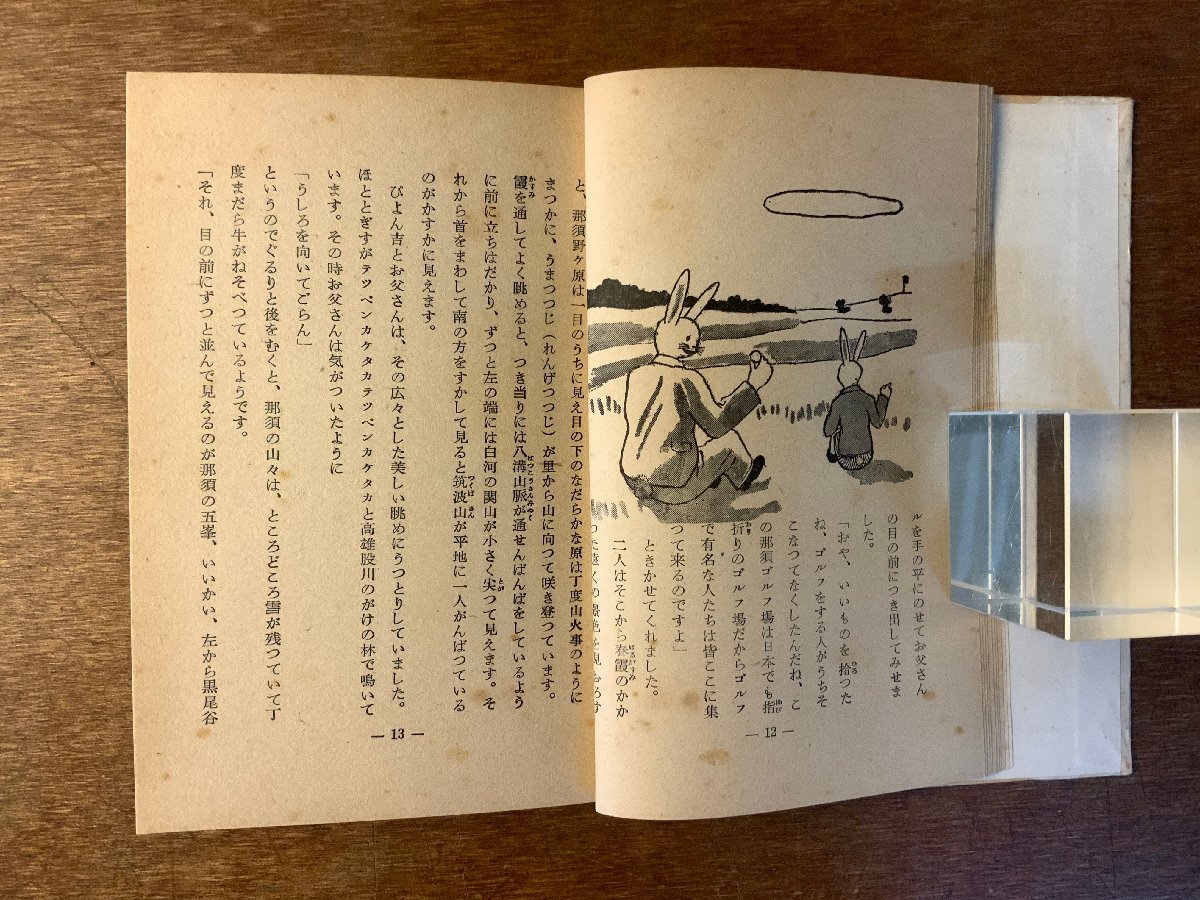 ルを手の平にのせてお父さん
の目の前につき出してみせま
した。
「おや、いいものを拾つた
ね、ゴルフをする人がうちそ
こなつてなくしたんだね、こ
の那須ゴルフ場は日本でも指
折りのゴルフ場だからゴルフ
で有名な人たちは皆ここに集
つて来るのですよ」
ときかせてくれました。
二人はそこから春霞のかか
った遠くの景色を見おろす
— 12 —
と、那須野ヶ原は一目のうちに見え目の下のなだらかな原は丁度山火事のように
まつかに、うまつつじ（れんげつつじ）が里から山に向つて咲き登つています。
霞を通してよく眺めると、つき当りには八溝山脈が通せんばんばをしているよう
に前に立ちはだかり、ずつと左の端には白河の関山が小さく尖つて見えます。そ
れから首をまわして南の方をすかして見ると筑波山が平地に一人がんばつている
のがかすかに見えます。
ぴよん吉とお父さんは、その広々とした美しい眺めにうつとりしていました。
ほととぎすがテツペンカケタカテツペンカケタカと高雄股川のがけの林で鳴いて
います。その時お父さんは気がついたように
「うしろを向いてごらん」
というのでぐるりと後をむくと、那須の山々は、ところどころ雪が残つていて丁
度まだら牛がねそべつているようです。
「それ、目の前にずつと並んで見えるのが那須の五峯、いいかい、左から黒尾谷
— 13 —